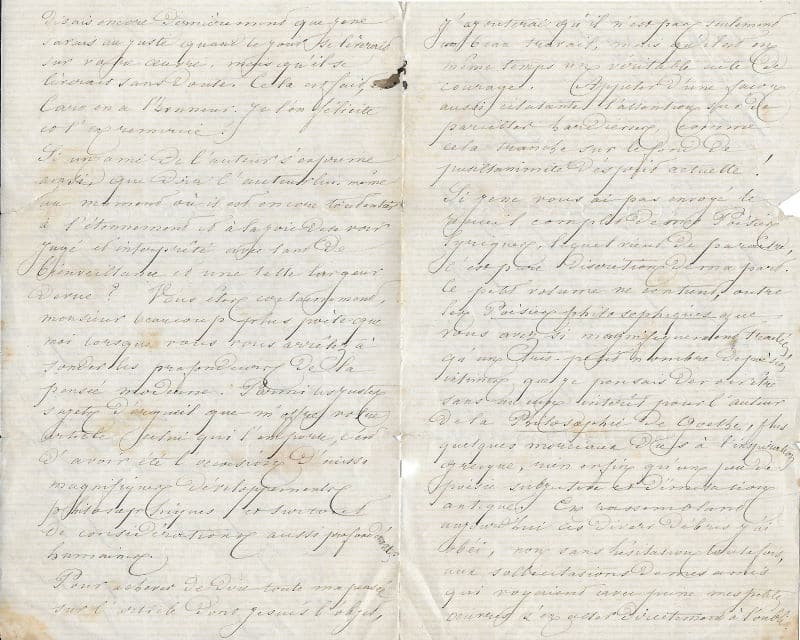 disais encore dernièrement que je ne
savais au juste quand le jour se lèverait
sur votre œuvre, mais qu'il se
lèverait sans doute. Cela est fait,
Caro en a l'honneur. Je l'en félicite
et l'en remercie!
Si un ami de l'auteur s'exprime
ainsi, que dira l'auteur lui même
au moment où il est encore tout entier
à l'étonnement et à la joie de se voir
jugé et interprété avec tant de
bienveillance et une telle largeur
de vue? Vous êtes certainement,
monsieur beaucoup plus poète que
moi lorsque vous vous arrêtez à
sonder les profondeurs de la
pensée moderne. Parmi les justes
sujets d'orgueil que m'offre votre
article celui qui l'emporte, c'est
d'avoir été l'occasion d'aussi
magnifiques développements
philosophiques et surtout
de considérations aussi profondément
humaines.
Pour achever de dire toute ma pensée
sur l'article dont je suis l'objet,
j'ajouterai qu'il n'est pas seulement
un beau travail, mais qu'il est en
même temps un véritable acte de
courage. Appeler d'une façon
aussi éclatante l'attention sur de
pareilles hardiesses, comme
cela tranche sur le fond de
pusillanimité d'esprit actuelle!
Si je ne vous ai pas envoyé le
recueil complet de mes Poésies
lyriques, lequel vient de paraître,
c'est pure discrétion de ma part.
Ce petit volume ne contient, outre
les Poésies philosophiques que
vous avez si magnifiquement traitées,
qu'un très petit nombre de pièces
intimes que je pensais devoir être
sans aucun intérêt pour l'auteur
de la Philosophie de Goethe, plus
quelques morceaux dûs à l'inspiration
grecque, rien enfin qu'un peu de
poésie subjective et d'imitation
antique. En rassemblant
aujourd'hui ces divers débris j'ai
obéi, non sans hésitation toutefois,
aux sollicitations de mes amis
qui voyaient avec peine mes petites
œuvres s'en aller directement à l'oubli